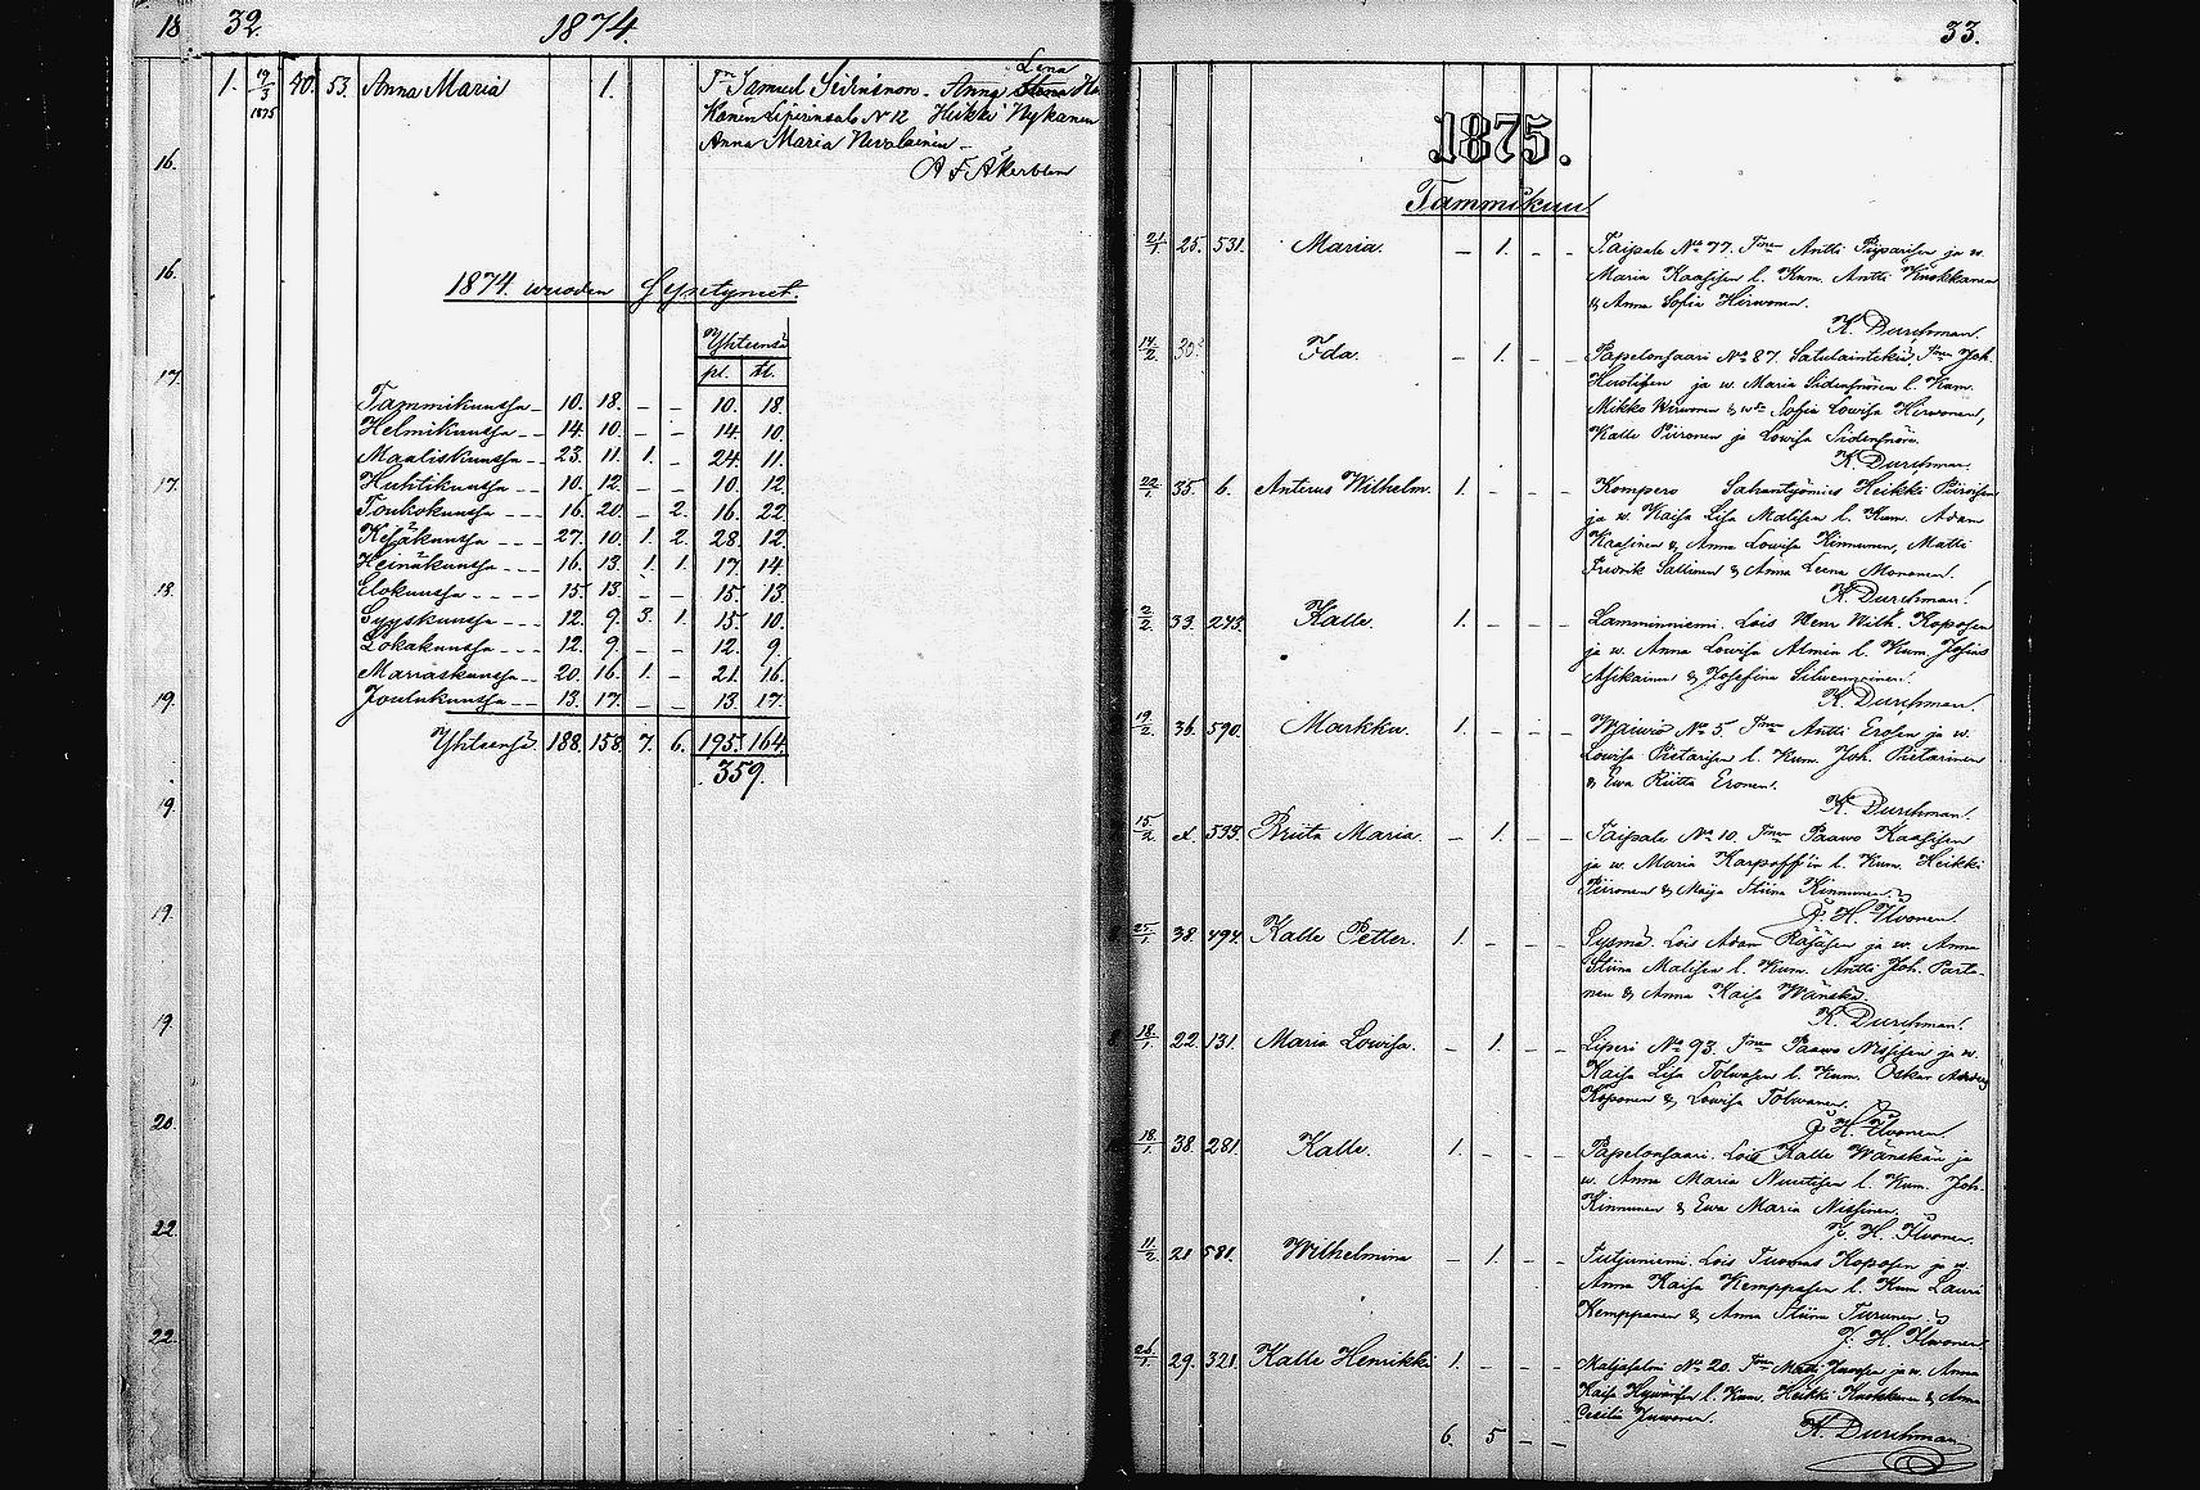 18 32. 1874.
1. 19/3 1875 40. 53. Anna Maria 1. Tn Samuel Sidensnor. Anna Lena
Liperinsalo N 12 Heikki Nykanen
Anna Maria Nevalainen
A F Åkerblom
16.
16.
17.
17.
18.
19.
19.
19.
19.
20.
22.
22.
1874. wuoden Syntyneet.
Yhteensä
pl. tl.
Tammikuussa 10. 18. – – 10. 18.
Helmikuussa 14. 10. – – 14. 10.
Maaliskuussa 23. 11. 1. – 24. 11.
Huhtikuussa 10. 12. – – 10. 12.
Toukokuussa 16. 20. – 2. 16. 22.
Kesäkuussa 27. 10. 1. 2. 28. 12.
Heinäkuussa 16. 13. 1. 1. 17. 14.
Elokuussa 15. 13. – – 15. 13.
Syyskuussa 12. 9. 3. 1. 15. 10.
Lokakuussa 12. 9. – – 12. 9.
Marraskuussa 20. 16. 1. – 21. 16.
Joulukuussa 13. 17. – – 13. 17.
Yhteensä 188. 158. 7. 6. 195. 164.
359.
33.
1875.
Tammikuu
21/1 25. 531. Maria. – 1. – – Taipale No 77. Tmn Antti Piiparisen ja w.
Maria Kaasisen l. Kum. Antti Kuokkanen
& Anna Sofia Hirwonen.
K. Durchman.
14/2 30. Ida. – 1. – – Papelonsaari No 87. Satulaintekiä, Tmn Joh.
ja w. Maria Sidensnören l. Kum.
Mikko Hirwonen & Sofia Lowisa Hirwonen,
Kalle Piironen ja Lowisa Sidensnöre.
K. Durchman.
22/1 35. 6. Anterus Wilhelm. 1. – – – Kompero Sahantyömies Heikki Piiroisen
ja w. Kaisa Lisa Malisen l. Kum. Adam
Kaasinen & Anna Lowisa Kinnunen, Matti
Fredrik Sallinen & Anna Leena Mononen.
K. Durchman.
2/2 33. 243. Kalle. 1. – – – Lamminniemi. Lois Henr Wilh. Koposen
ja w. Anna Lowisa Almin l. Kum. Josias
Asikainen & Josefina Silwennoinen.
K. Durchman.
19/2 36. 590. Markku. 1. – – – Waiwio No 5. Tmn Antti Erosen ja w.
Lowisa Pietarisen l. Kum. Joh. Pietarinen
& Ewa Riitta Eronen.
K. Durchman.
15/2 533. Briita Maria. – 1. – – Taipale No 10. Tmn Paawo Kaasisen
ja w. Maria Karpoff'in l. Kum. Heikki
Piironen & Maija Stiina Kinnunen.
J. H. Ilvonen.
25/1 38. 494. Kalle Petter. 1. – – – Sysmä. Lois Adam Räsäsen ja w. Anna
Stiina Malisen l. Kum. Antti Joh. Parta-
nen & Anna Kaisa Wänskä.
K. Durchman.
18/1 22. 131. Maria Lowisa. – 1. – – Liperi No 93. Tmn Paawo Nissisen ja w.
Kaisa Lisa Tolwasen l. Kum. Oskar
Koponen & Lowisa Tolwanen.
J. H. Ilvonen.
18/1 38. 281. Kalle. 1. – – – Papelonsaari. Lois Kalle Wänskän ja
w. Anna Maria Nuutisen l. Kum. Joh.
Kinnunen & Ewa Maria Nissinen.
J. H. Ilvonen.
11/2 21 581. Wilhelmina – 1. – – Tutjuniemi. Lois Tuomas Koposen ja w.
Anna Kaisa Kemppasen l. Kum Lauri
Kemppanen & Anna Stiina Turunen.
J. H. Ilvonen.
26/1 29. 321. Kalle Henrikki 1. – – – Maljasalmi No 20. Tmn Matti Juwosen ja w. Anna
Kaisa Hywärisen l. Kum. Heikki Kuokkanen & Anna
Cesilia Juwonen.
K. Durchman
6. 5 – –